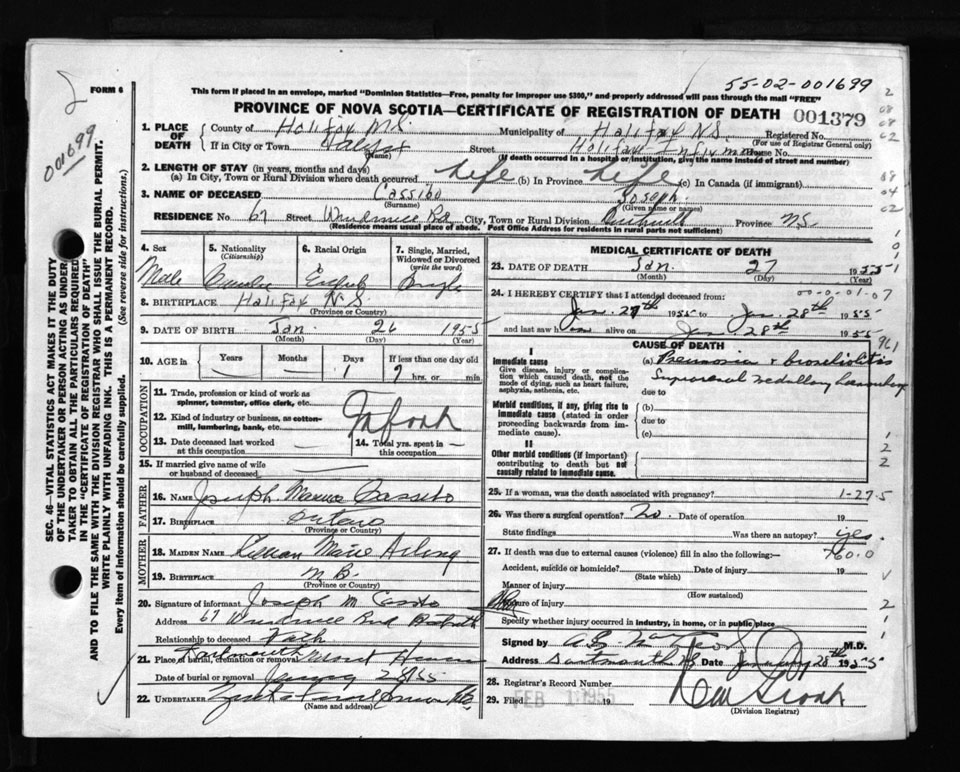 55-02-001699
This form if placed in an envelope, marked "Dominion Statistics—Free, penalty for improper use $300," and properly addressed will pass through the mail "FREE"
FORM 6
PROVINCE OF NOVA SCOTIA—CERTIFICATE OF REGISTRATION OF DEATH 001379
001699
1. PLACE OF DEATH
County of Halifax N.S. Municipality of Halifax N.S. Registered No.
(For use of Registrar General only)
If in City or Town Halifax (Name) Street Halifax Infirmary House No.
(If death occurred in a hospital or institution, give the name instead of street and number)
2. LENGTH OF STAY (in years, months and days)
(a) In City, Town or Rural Division where death occurred life (b) In Province life (c) In Canada (if immigrant)
3. NAME OF DECEASED Cassibo (Surname) Joseph (Given name or names)
RESIDENCE No. 67 Street Windmill Rd City, Town or Rural Division Province NS.
(Residence means usual place of abode. Post Office Address for residents in rural parts not sufficient)
4. Sex Male
5. Nationality (Citizenship)
6. Racial Origin
7. Single, Married, Widowed or Divorced (write the word) Single
8. BIRTHPLACE Halifax N.S.
(Province or Country)
9. DATE OF BIRTH Jan. (Month) 26 (Day) 1955 (Year)
10. AGE in Years — Months — Days 1 If less than one day old 9 hrs. or min.
OCCUPATION
11. Trade, profession or kind of work as spinner, teamster, office clerk, etc.
12. Kind of industry or business, as cotton-mill, lumbering, bank, etc. Infant
13. Date deceased last worked at this occupation —
14. Total yrs. spent in this occupation —
15. If married give name of wife or husband of deceased
FATHER
16. NAME Joseph Cassibo
17. BIRTHPLACE
(Province or Country)
MOTHER
18. MAIDEN NAME Marie
19. BIRTHPLACE N.B.
(Province or Country)
20. Signature of informant Joseph M
Address 67 Windmill Rd
Relationship to deceased Father
21. Place of burial, cremation or removal Dartmouth Mount
Date of burial or removal January 28/55
22. UNDERTAKER
(Name and address)
MEDICAL CERTIFICATE OF DEATH
23. DATE OF DEATH Jan. (Month) 27 (Day) 1955 (Year)
24. I HEREBY CERTIFY that I attended deceased from: 000-01-07
Jan. 27th 1955 to Jan. 28th 1955
and last saw h alive on Jan. 28th 1955
961
CAUSE OF DEATH
I
Immediate cause
Give disease, injury or complication which caused death, not the mode of dying, such as heart failure, asphyxia, asthenia, etc.
(a) Pneumonia & bronchiolitis
Suprarenal medullary haemorrhage
due to
Morbid conditions, if any, giving rise to immediate cause (stated in order proceeding backwards from immediate cause).
(b)
due to
(c)
II
Other morbid conditions (if important) contributing to death but not causally related to immediate cause.
25. If a woman, was the death associated with pregnancy? 1-27.5
26. Was there a surgical operation? No. Date of operation 19
State findings Was there an autopsy? yes.
27. If death was due to external causes (violence) fill in also the following:— 760.0
Accident, suicide or homicide? (State which) Date of injury 19
Manner of injury (How sustained)
Nature of injury
Specify whether injury occurred in industry, in home, or in public place
Signed by M.D.
Address Dartmouth NS Date January 28th 1955
28. Registrar's Record Number
29. Filed FEB 1 1955 19
(Division Registrar)
SEC. 46—VITAL STATISTICS ACT MAKES IT THE DUTY
OF THE UNDERTAKER OR PERSON ACTING AS UNDER-
TAKER TO OBTAIN ALL THE PARTICULARS REQUIRED
IN THE "CERTIFICATE OF REGISTRATION OF DEATH"
AND TO FILE THE SAME WITH THE DIVISION REGISTRAR WHO SHALL ISSUE THE BURIAL PERMIT.
WRITE PLAINLY WITH UNFADING INK. THIS IS A PERMANENT RECORD.
Every item of Information should be carefully supplied. (See reverse side for instructions.)